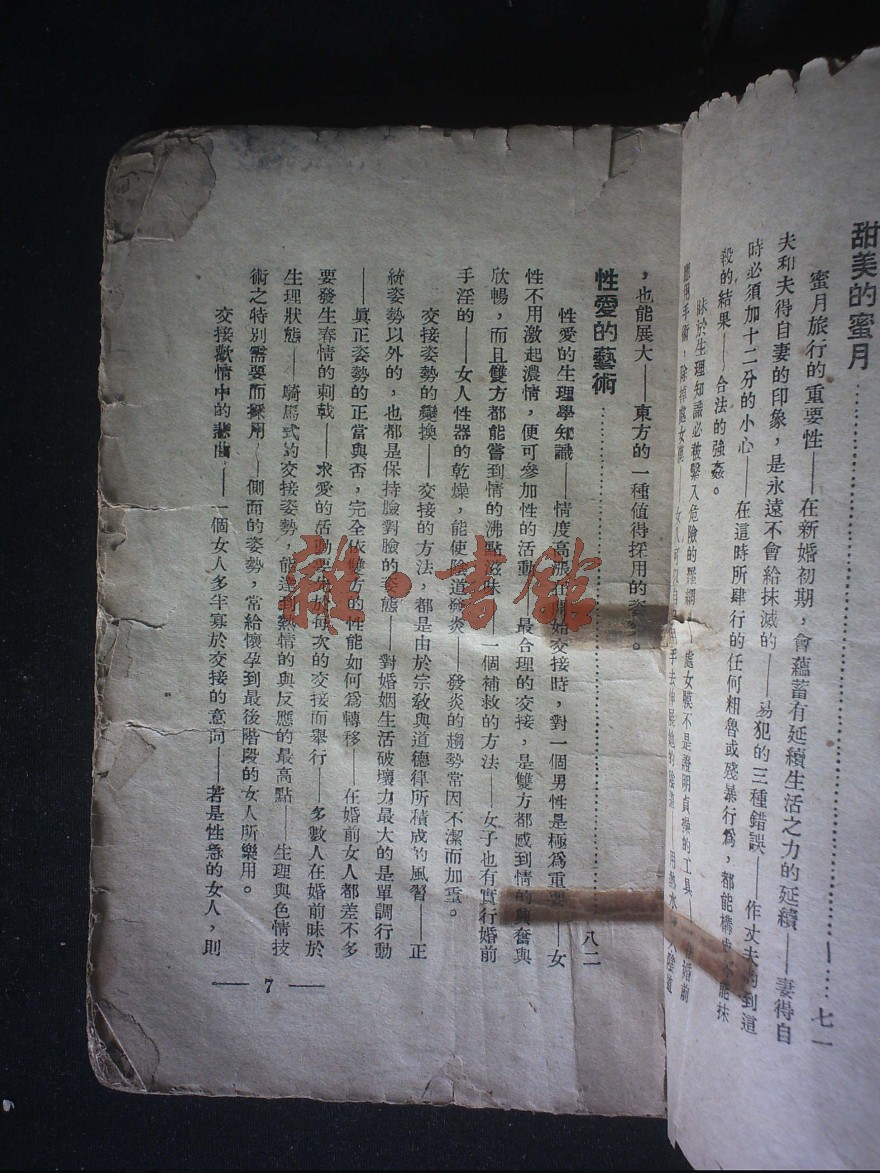 甜美的蜜月……七一
蜜月旅行的重要性——在新婚初期，會蘊蓄有延續生活之力的延續——妻得自
夫和夫得自妻的印象，是永遠不會給抹滅的——易犯的三種錯誤——作丈夫的到這
時必須加十二分的小心——在這時所肆行的任何粗魯或殘暴行爲，都能構成不能抹
殺的結果——合法的強姦。
昧於生理知識必被繫入危險的羅網——處女膜不是證明貞操的工具——婚前
應用手術，除掉處女膜——女人可以自用手去伸展她的陰道——用熱水
，也能展大——東方的一種值得採用的
性愛的藝術……八二
性愛的生理學知識——情度高漲在開始交接時，對一個男性是極爲重要——女
性不用激起濃情，便可參加性的活動——最合理的交接，是雙方都感到情的興奮與
欣暢，而且雙方都能嘗到情的沸點滋味——一個補救的方法——女子也有實行婚前
手淫的——女人性器的乾燥，能使陰道發炎——發炎的趨勢常因不潔而加重。
交接姿勢的變換——交接的方法，都是由於宗敎與道德律所積成的風習——正
統姿勢以外的，也都是保持臉對臉的姿態——對婚姻生活破壞力最大的是單調行動
——眞正姿勢的正當與否，完全依雙方的性能如何爲轉移——在婚前女人都差不多
要發生春情的刺戟——求愛的活動要先於每次的交接而舉行——多數人在婚前昧於
生理狀態——騎馬式的交接姿勢，能達到熱情的與反應的最高點——生理與色情技
術之特別需要而採用——側面的姿勢，常給懷孕到最後階段的女人所樂用。
交接歡情中的悲曲——一個女人多半寡於交接的意向——若是性急的女人，則
— 7 —
雜·書館